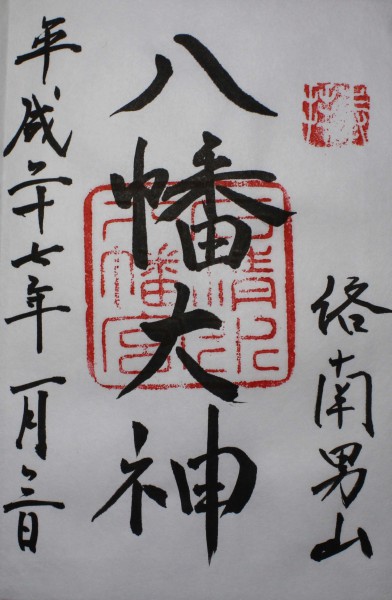 奉拝
洛南男山
八幡大神
石清水
八幡宮
平成二十七年一月三日